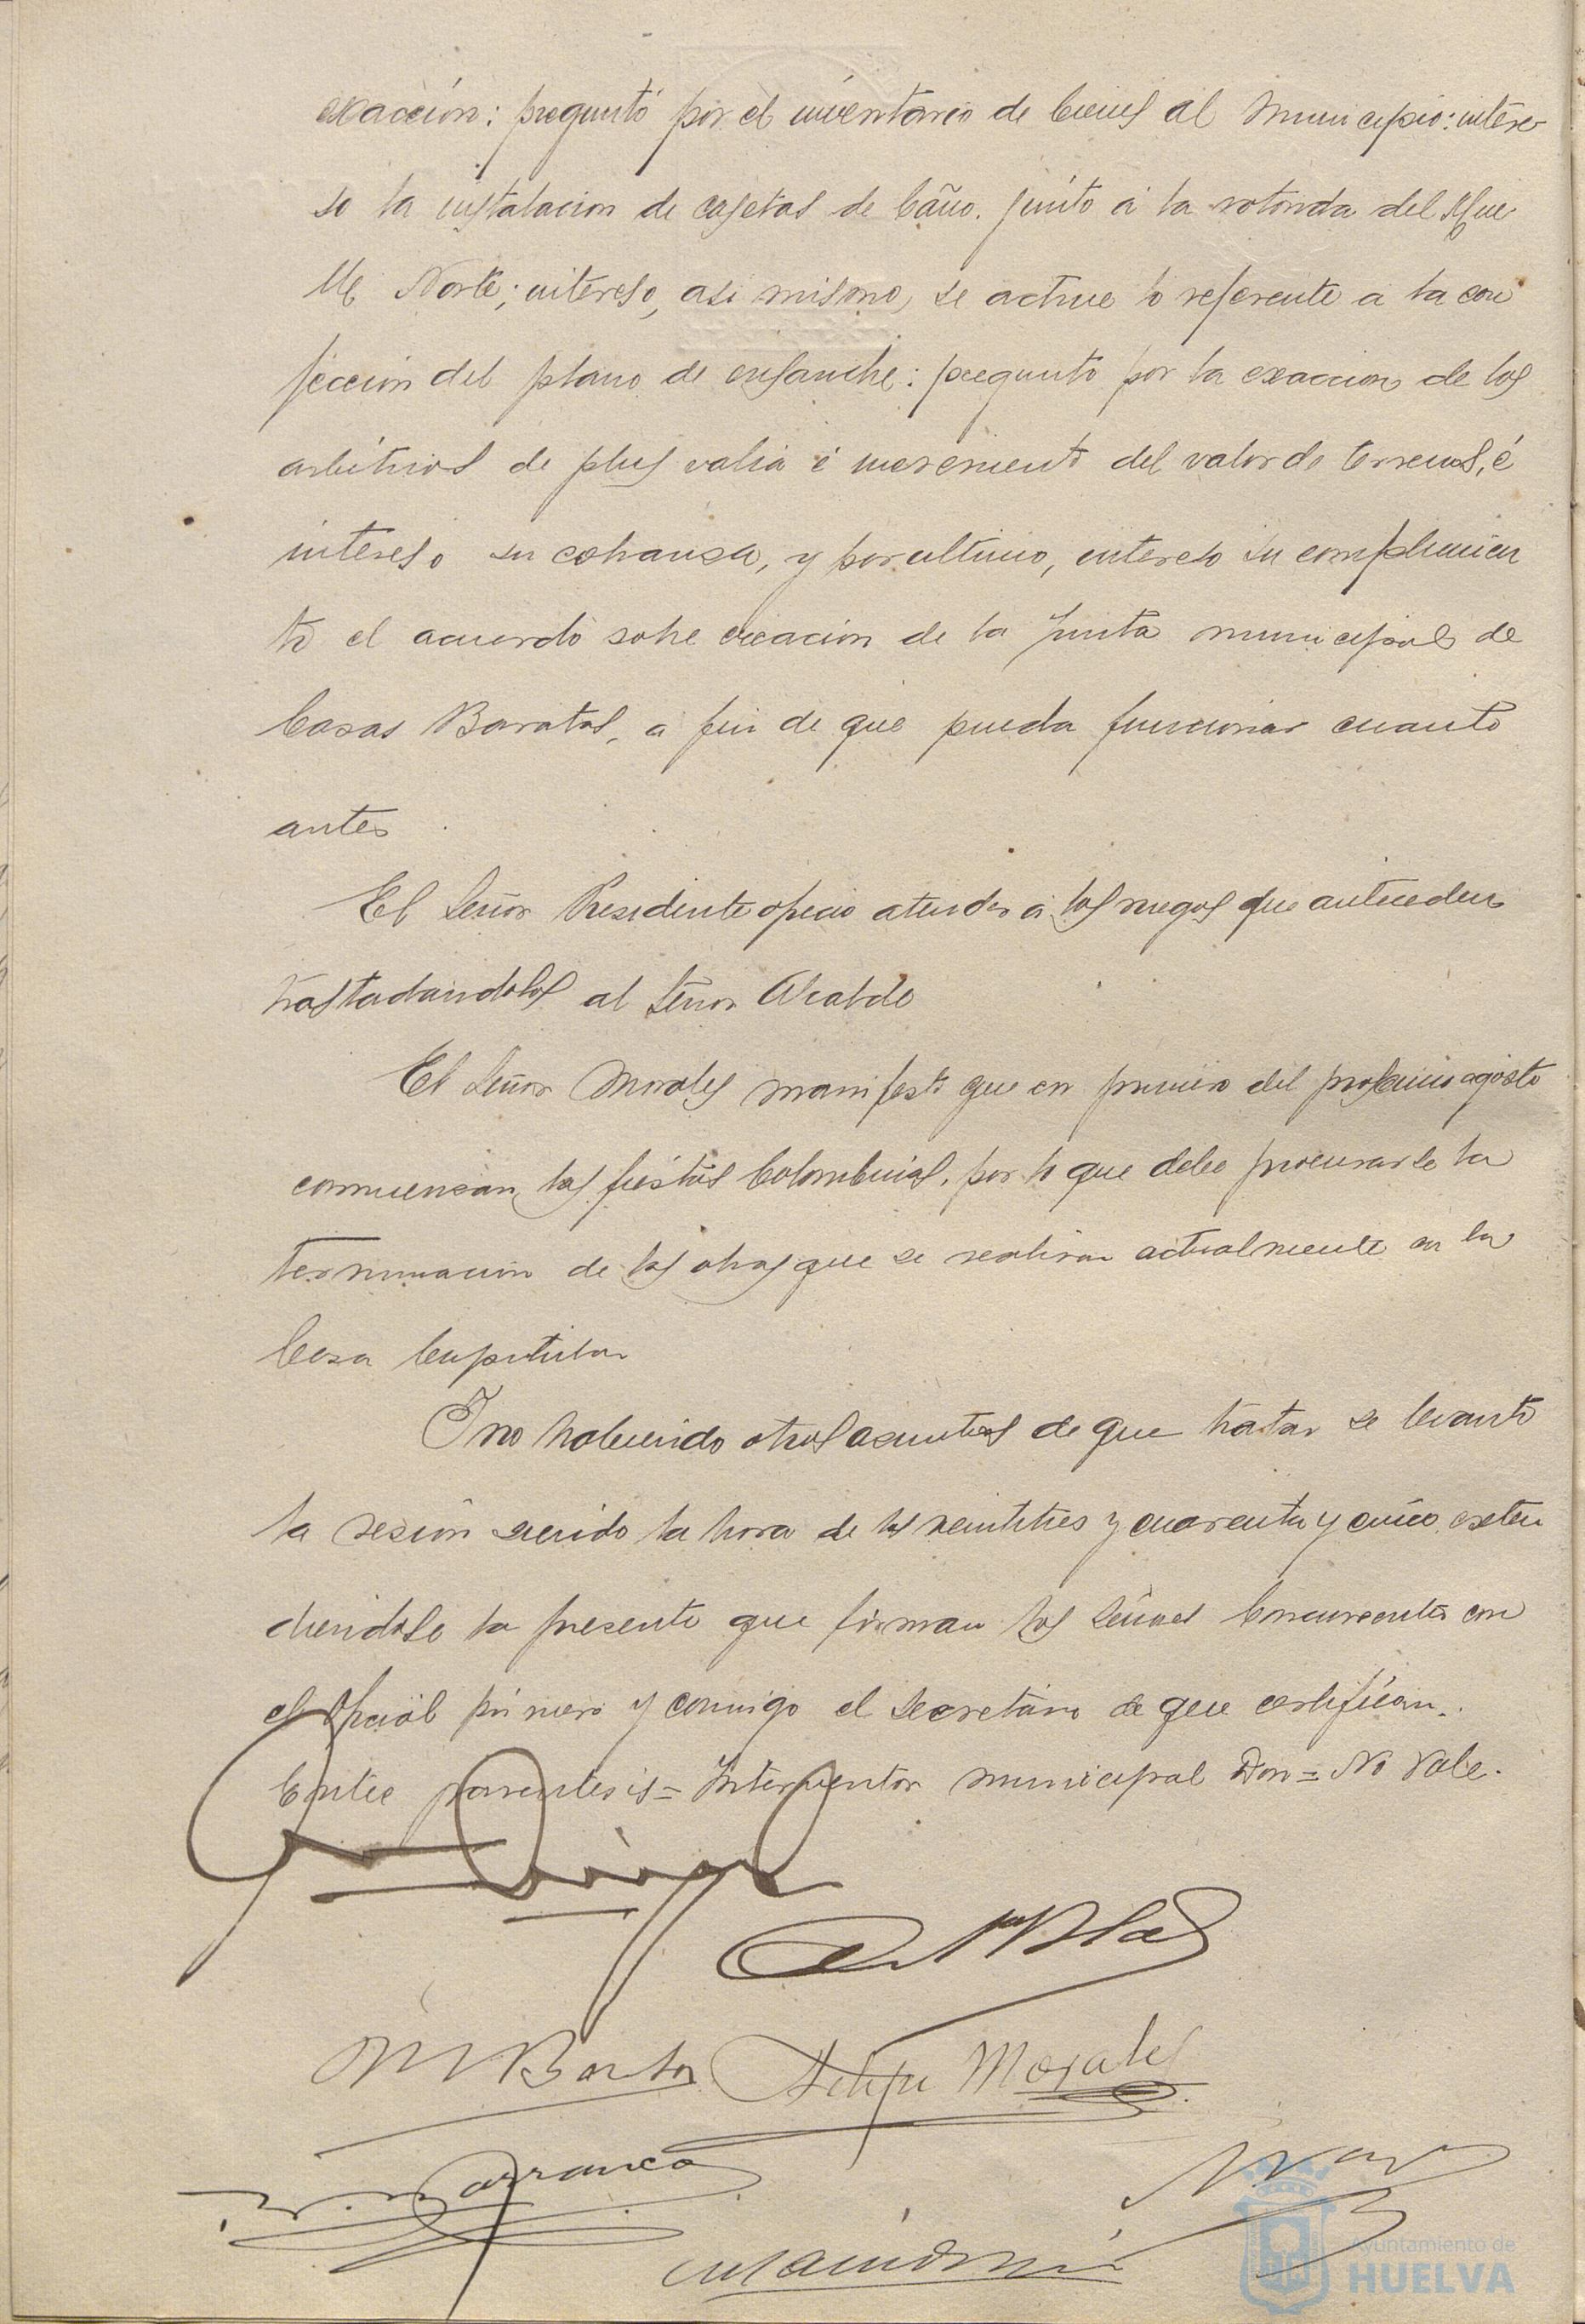 exacción: preguntó por el inventario de bienes al Municipio: intere
so la instalacion de casetas de baño junto á la rotonda del Mue
lle Norte; intereso, asi mismo, se active lo referente a la con
feccion del plano de ensanche: pregunto por la exaccion de los
arbitrios de plus valia é incremento del valor de terrenos, é
intereso su cobranza, y por ultimo, intereso su complimien
to el acuerdo sobre creación de la Junta municipal de
Casas Baratas, a fin de que pueda funcionar cuanto
antes
El Señor Presidente ofrecio atender á los ruegos que anteceden
trasladandolos al Señor Alcalde
El Señor Morales manifesto que en primero del proximo agosto
comienzan las fiestas Colombinas, por lo que debe procurarse la
terminacion de las obras que se realizan actualmente en la
Casa Capitular
Y no habiendo otros asuntos de que tratar se levanto
la sesion siendo la hora de las veintitres y cuarenta y cinco, exten
diendose la presente que firman los Señores Concurrentes con
el Oficial primero y conmigo el Secretario de que certifican.
Entre parentesis = Interventor municipal Don = No Vale.
Felipe Morales
Ayuntamiento de
HUELVA